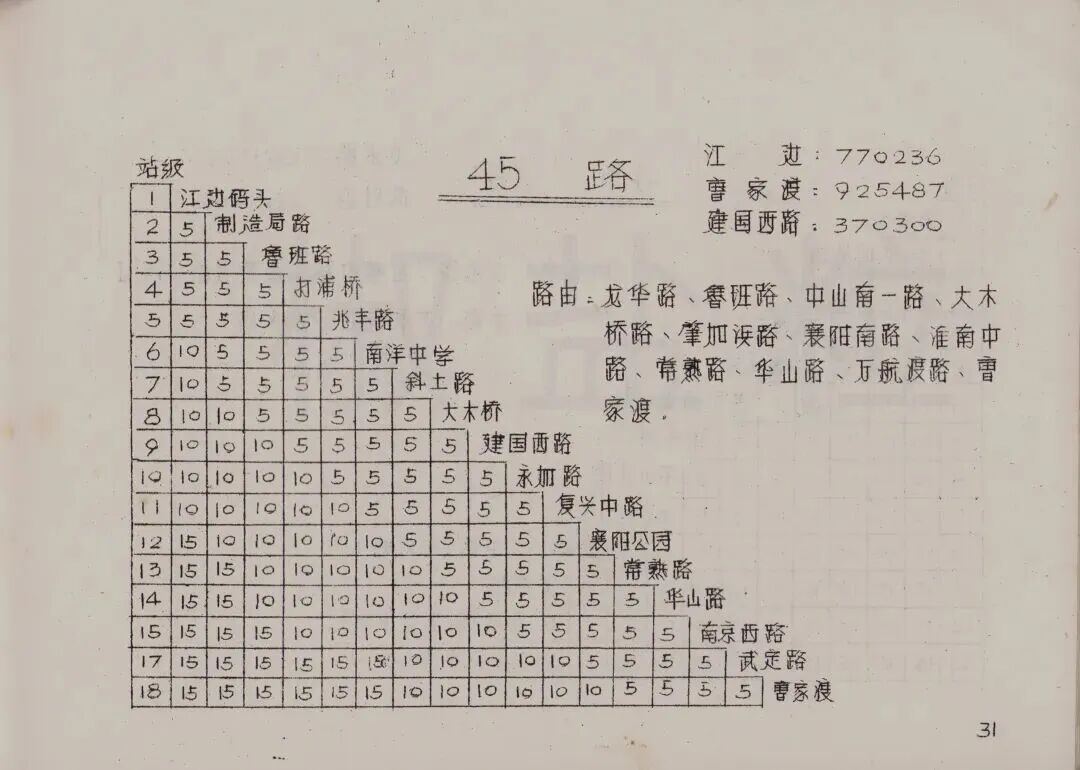 站级
45 路
江边：770236
曹家渡：925487
建国西路：370300
路由：龙华路、鲁班路、中山南一路、大木
桥路、肇加浜路、襄阳南路、淮南中
路、常熟路、华山路、万航渡路、曹
家渡.
1 江边码头
2 5 制造局路
3 5 5 鲁班路
4 5 5 5 打浦桥
5 5 5 5 5 兆丰路
6 10 5 5 5 5 南洋中学
7 10 5 5 5 5 5 斜土路
8 10 10 5 5 5 5 5 大木桥
9 10 10 10 5 5 5 5 5 建国西路
10 10 10 10 10 5 5 5 5 5 永加路
11 10 10 10 10 10 5 5 5 5 5 复兴中路
12 15 10 10 10 10 10 5 5 5 5 5 襄阳公园
13 15 15 10 10 10 10 10 5 5 5 5 5 常熟路
14 15 15 10 10 10 10 10 10 5 5 5 5 5 华山路
15 15 15 15 10 10 10 10 10 10 5 5 5 5 5 南京西路
17 15 15 15 15 15 15 10 10 10 10 10 5 5 5 5 武定路
18 15 15 15 15 15 15 10 10 10 10 10 10 5 5 5 5 曹家渡
31